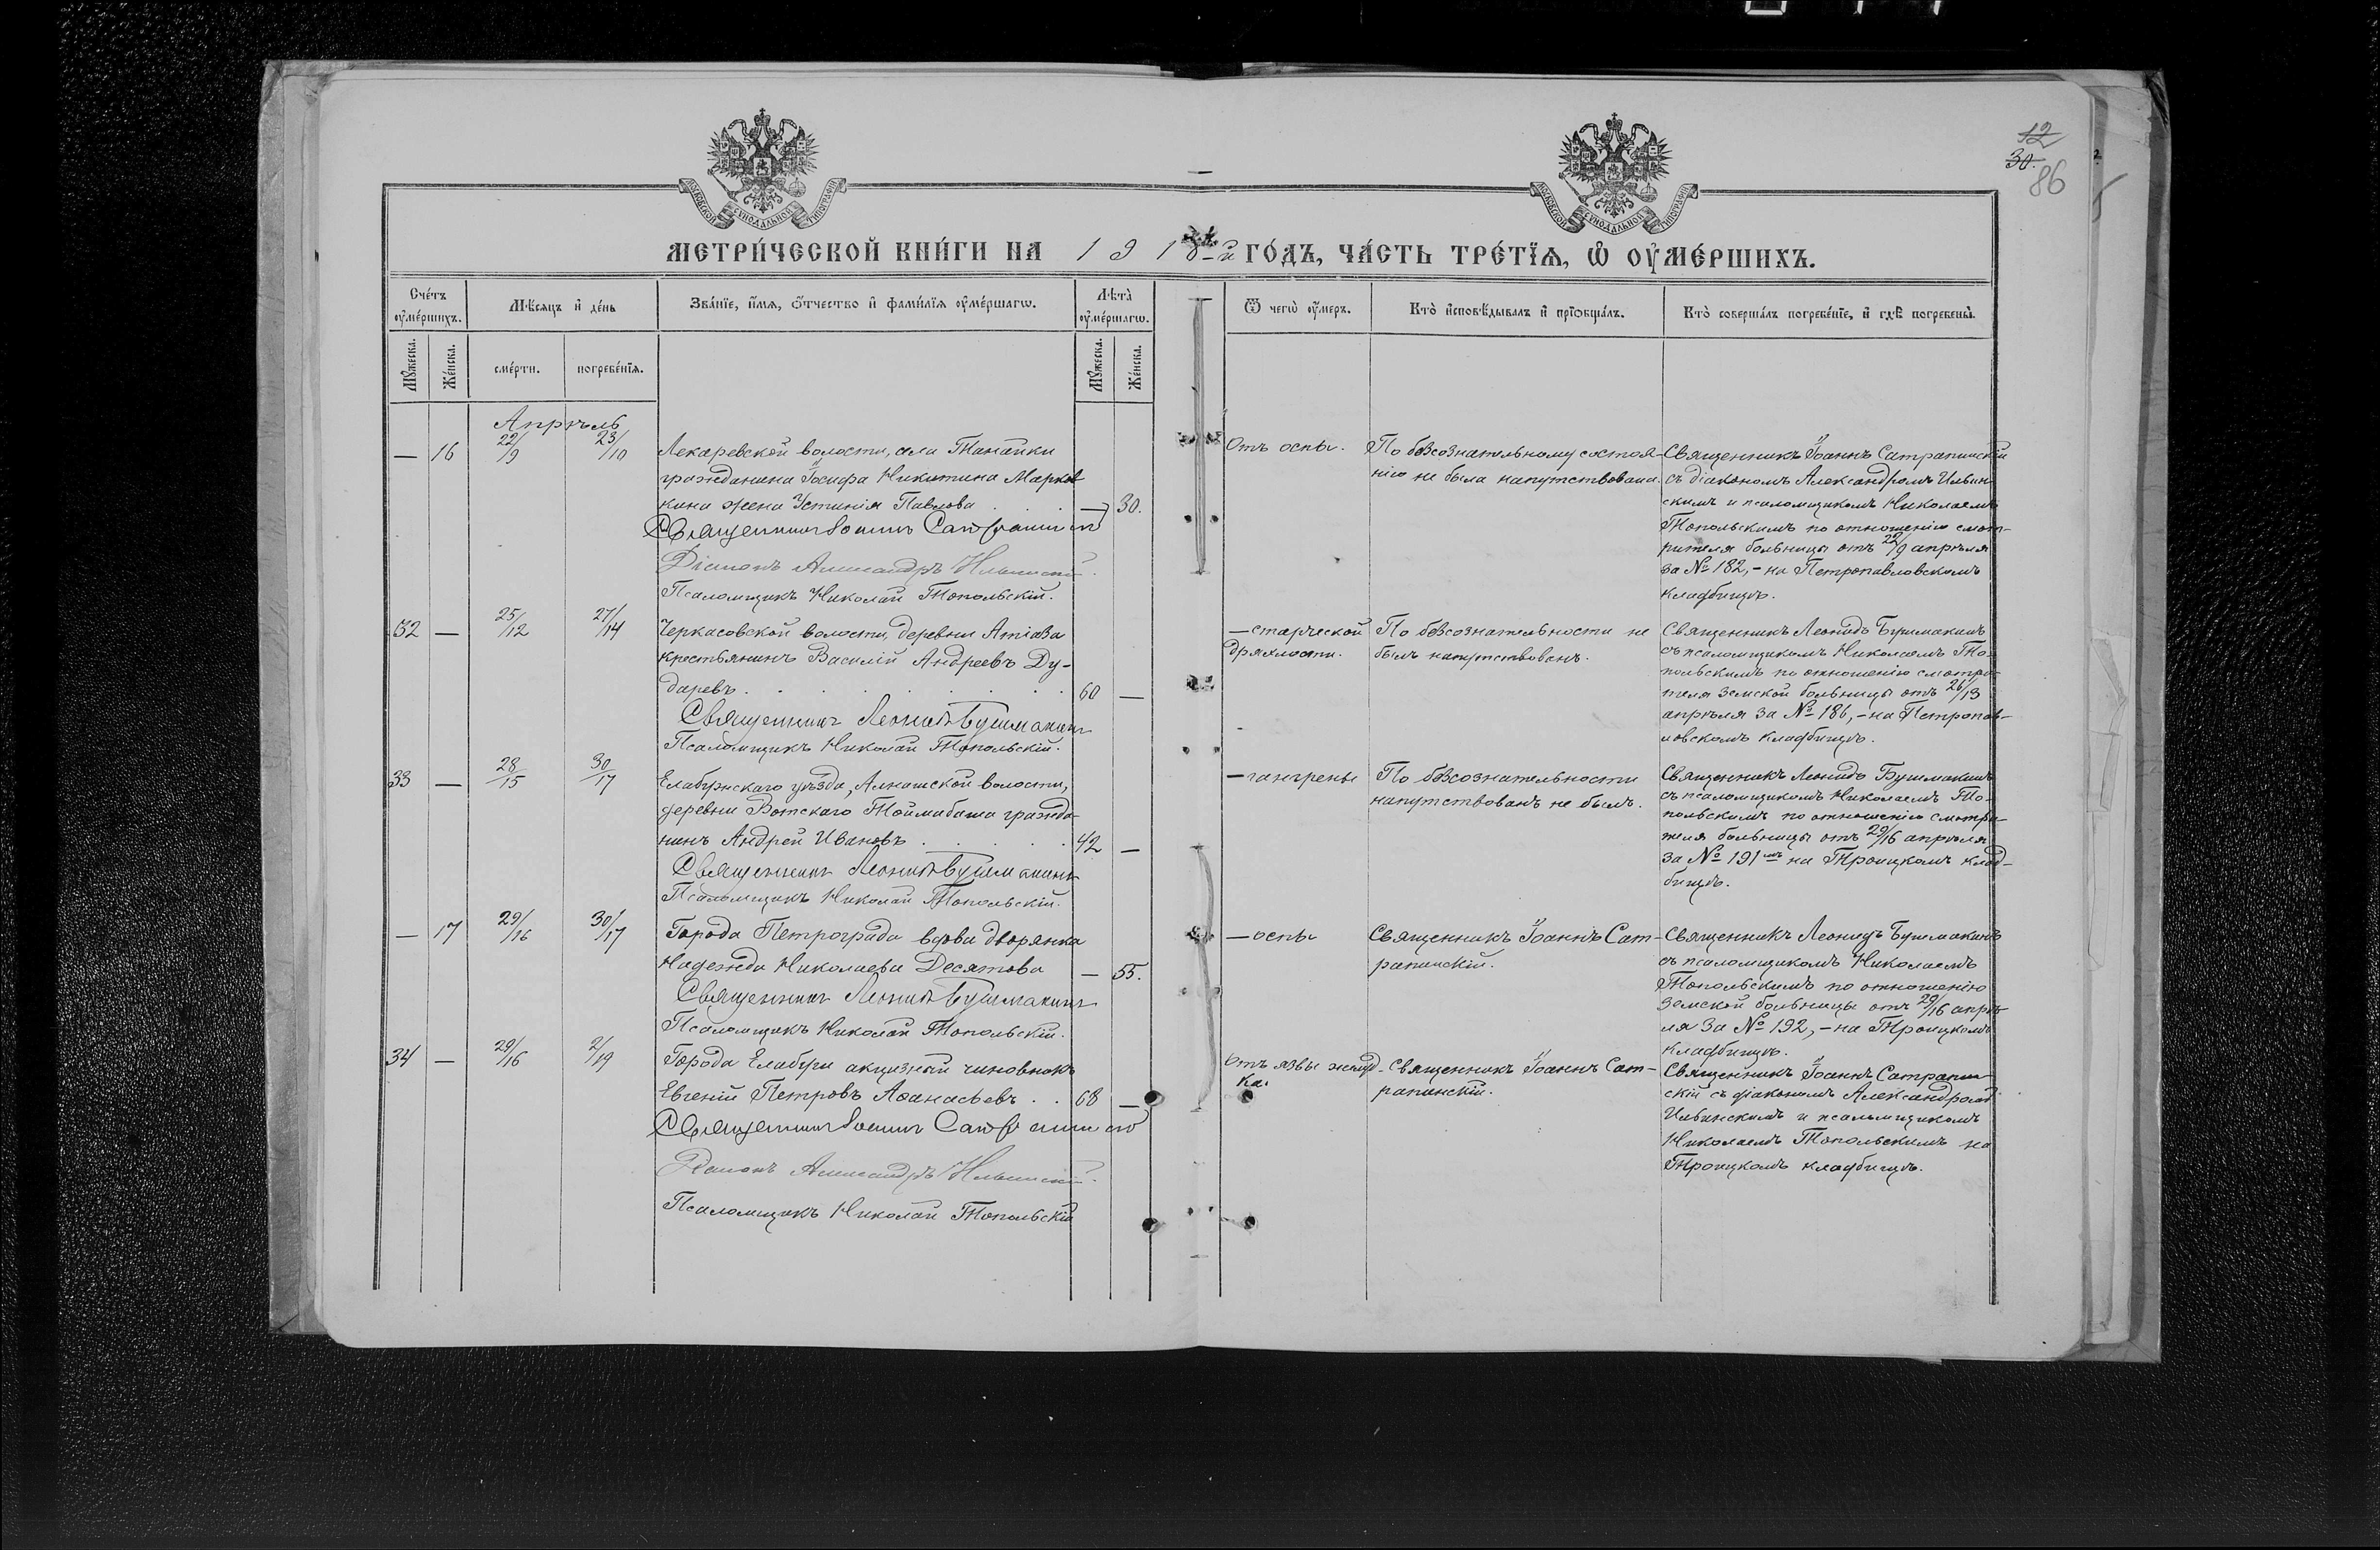 12
30.
86
МОСКОВСКОЙ СУНОДАЛЬНОЙ ТИПОГРАФІИ
МОСКОВСКОЙ СУНОДАЛЬНОЙ ТИПОГРАФІИ
МЕТРИ́ЧЕСКОЙ КНИ́ГИ НА 1918-й ГО́ДЪ, ЧА́СТЬ ТРЕ́ТЇѦ, Ѡ҆ ОУ҆МЕ́РШИХЪ.
Сче́тъ оу҆ме́ршихъ.
Мѣ́сѧцъ и҆ де́нь
Зва́нїе, и҆́мѧ, ѻ҆́тчество и҆ фами́лїѧ оу҆ме́ршагѡ.
Лѣ́та оу҆ме́ршагѡ.
Ѿ чегѡ̀ оу҆́меръ.
Кто̀ и҆сповѣ́дывалъ и҆ прїѡбща́лъ.
Кто̀ соверша́лъ погребе́нїе, и҆ гдѣ̀ погребены̀.
Мꙋ́жеска.
Же́нска.
сме́рти.
погребе́нїѧ.
Мꙋ́жеска.
Же́нска.
Апрѣль
— 16 22/9 23/10
Лекаревской волости, села Танайки
гражданина Іосифа Никитина Марков
кина жена Устинія Павлова . . . — 30.
Священникъ Іоаннъ Сатрапинскій
Діаконъ Александръ Ильинскій.
Псаломщикъ Николай Топольскій.
Отъ оспы.
По безсознательному состоя-
нію не была напутствована.
Священникъ Іоаннъ Сатрапинскій
съ діакономъ Александромъ Ильин-
скимъ и псаломщикомъ Николаемъ
Топольскимъ по отношенію смот-
рителя больницы отъ 22/9 апрѣля
за № 182, - на Петропавловскомъ
кладбищѣ.
32 — 25/12 27/14
Черкасовской волости, деревни Атіаза
крестьянинъ Василій Андреевъ Ду-
даревъ . . . . . . . . 60 —
Священникъ Леонидъ Бушмакинъ
Псаломщикъ Николай Топольскій.
— старческой
дряхлости.
По безсознательности не
былъ напутствованъ.
Священникъ Леонидъ Бушмакинъ
съ псаломщикомъ Николаемъ То-
польскимъ по отношенію смотри-
теля земской больницы отъ 26/13
апрѣля за № 186, - на Петропав-
ловскомъ кладбищѣ.
33 — 28/15 30/17
Елабужскаго уѣзда, Алнашской волости,
деревни Вотскаго Тоймабаша гражда-
нинъ Андрей Ивановъ . . . . . 42 —
Священникъ Леонидъ Бушмакинъ
Псаломщикъ Николай Топольскій.
— гангрены
По безсознательности
напутствованъ не былъ.
Священникъ Леонидъ Бушмакинъ
съ псаломщикомъ Николаемъ То-
польскимъ по отношенію смотри-
теля больницы отъ 29/16 апрѣля
за № 191мъ на Троицкомъ клад-
бищѣ.
— 17 29/16 30/17
Города Петрограда вдова дворянка
Надежда Николаева Десятова — 55.
Священникъ Леонидъ Бушмакинъ
Псаломщикъ Николай Топольскій.
— оспы
Священникъ Іоаннъ Сат-
рапинскій.
Священникъ Леонидъ Бушмакинъ
съ псаломщикомъ Николаемъ
Топольскимъ по отношенію
земской больницы отъ 29/16 апрѣ-
ля за № 192, - на Троицкомъ
кладбищѣ.
34 — 29/16 2/19
Города Елабуги акцизный чиновникъ
Евгеній Петровъ Аѳанасьевъ . . 68 —
Священникъ Іоаннъ Сатрапинскій
Діаконъ Александръ Ильинскій.
Псаломщикъ Николай Топольскій
Отъ язвы желуд-
ка.
Священникъ Іоаннъ Сат-
рапинскій.
Священникъ Іоаннъ Сатрапин-
скій съ діакономъ Александромъ
Ильинскимъ и псаломщикомъ
Николаемъ Топольскимъ на
Троицкомъ кладбищѣ.